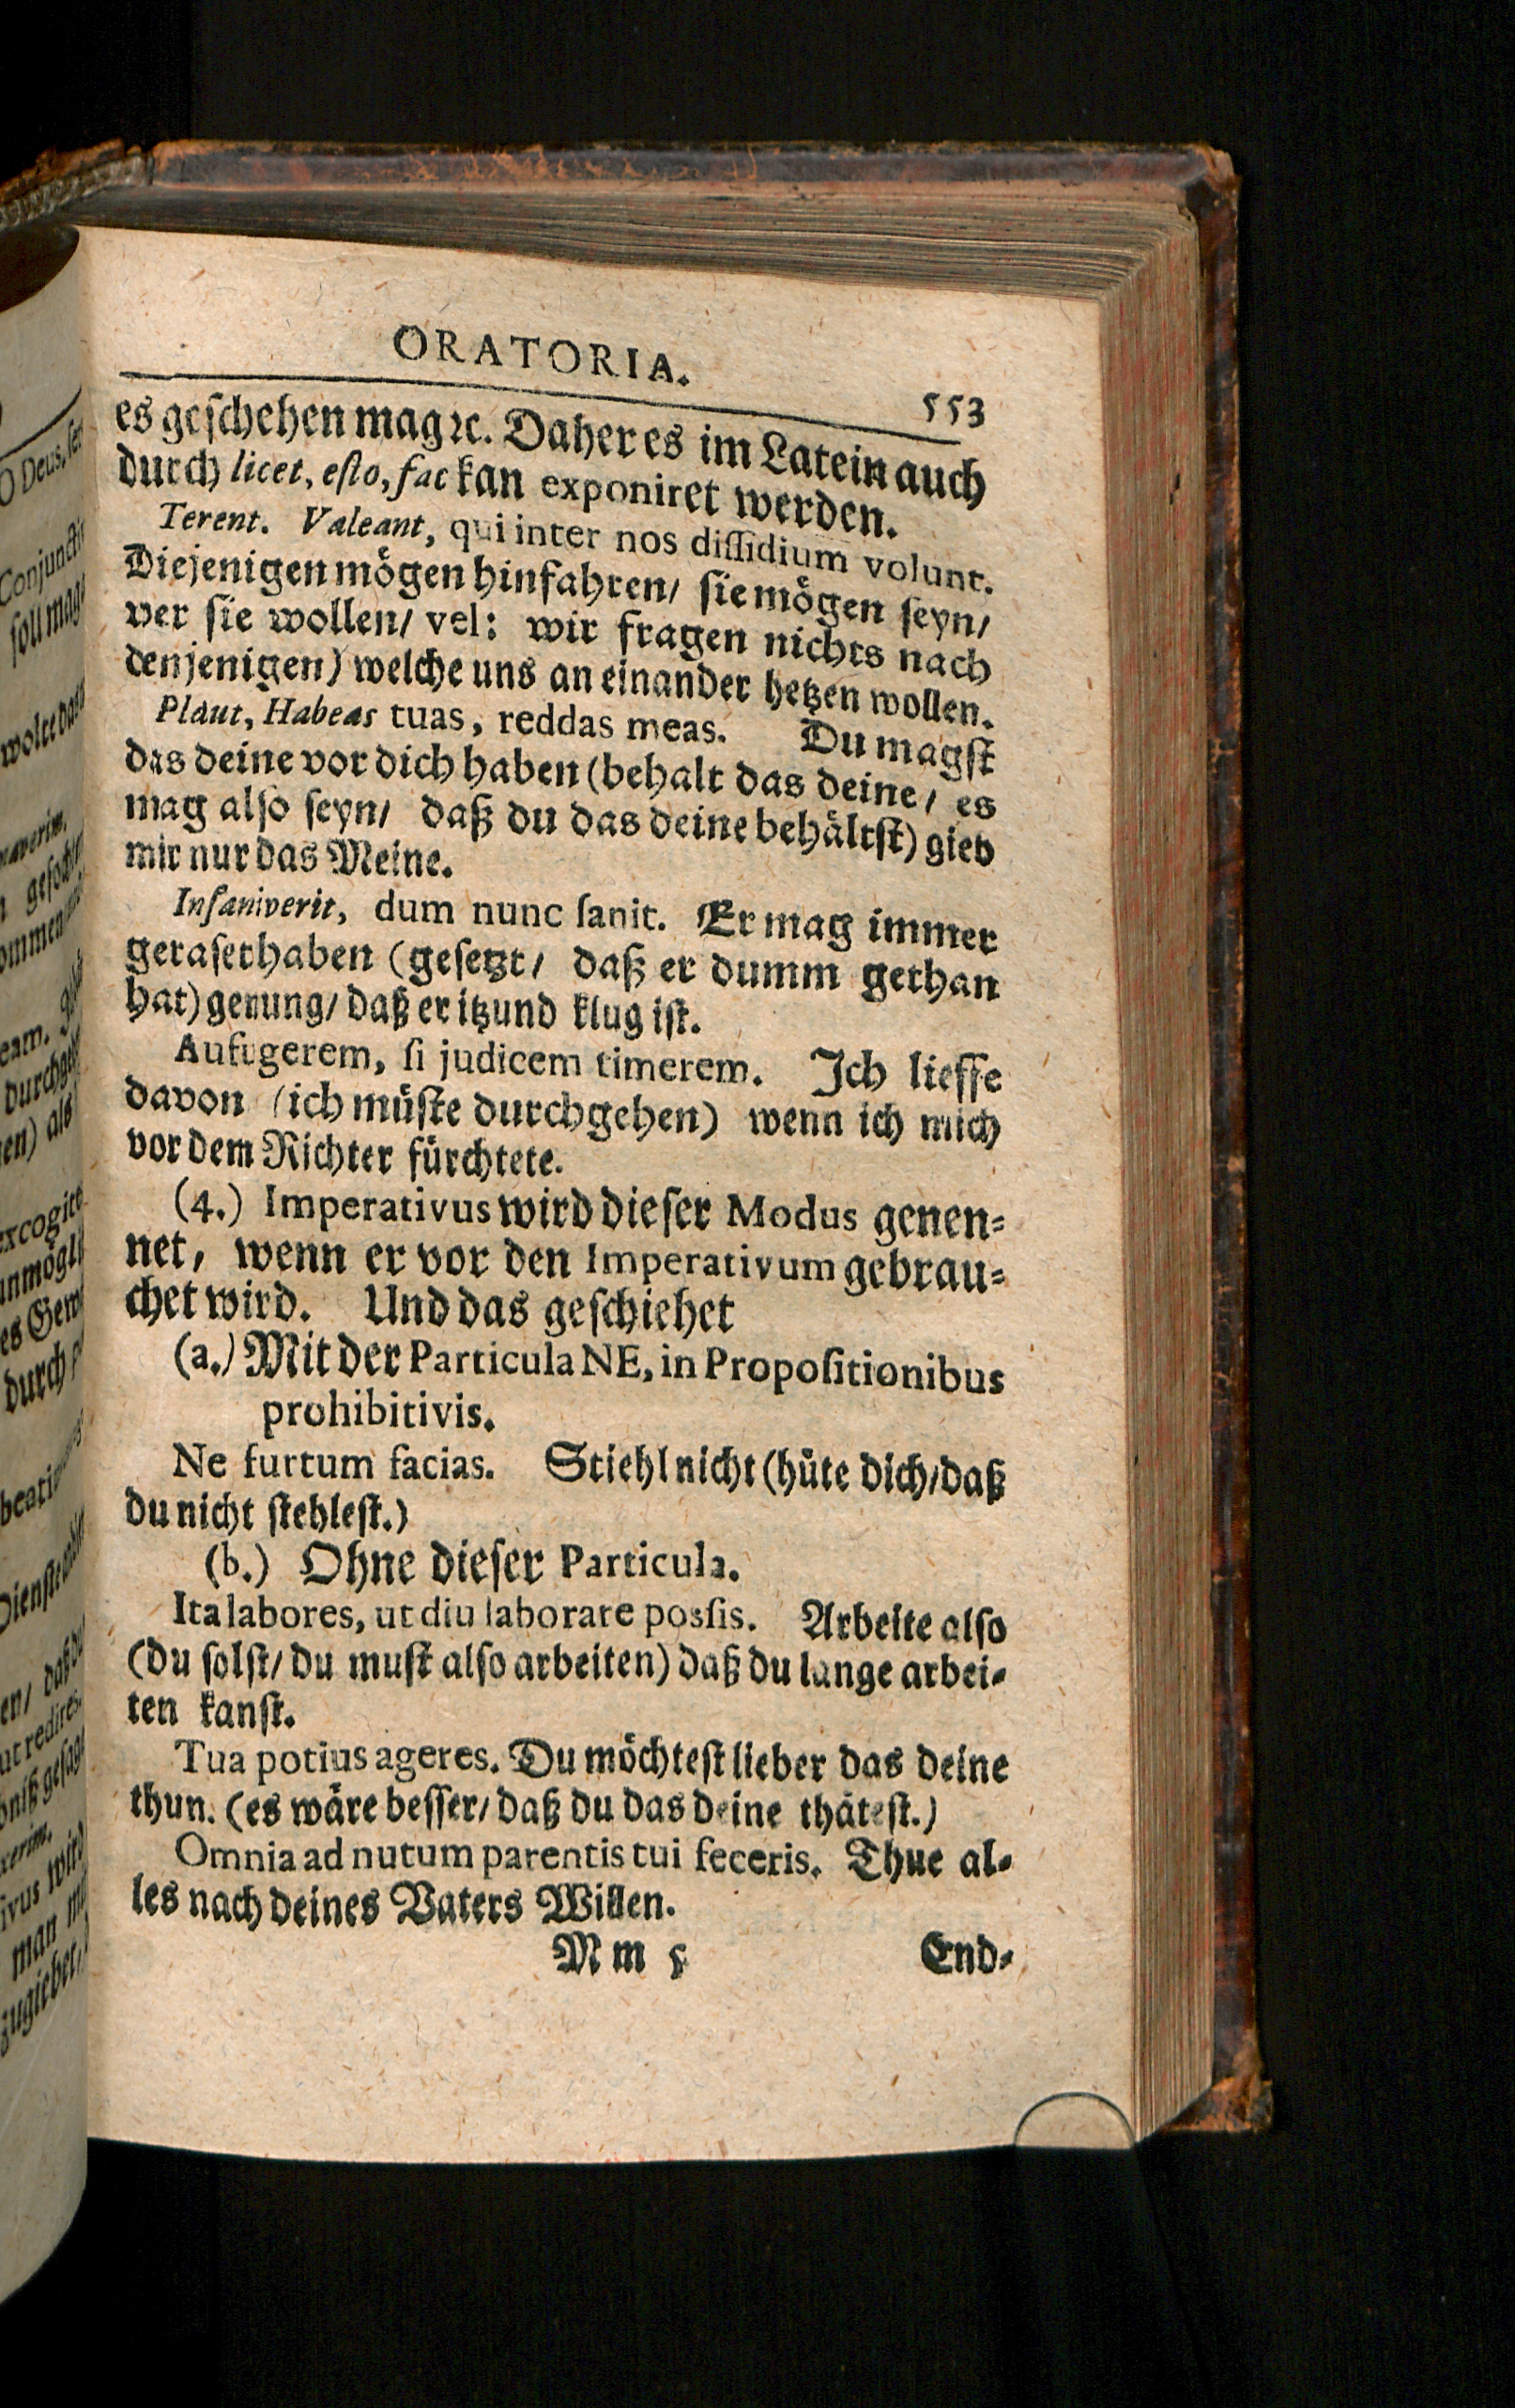 ORATORIA.
553
es geschehen mag ꝛc. Daher es im Latein auch
durch licet, esto, fac kan exponiret werden.
Terent. Valeant, qui inter nos dissidium volunt.
Diejenigen mögen hinfahren/ sie mögen seyn/
wer sie wollen/ vel: wir fragen nichts nach
denjenigen) welche uns an einander hetzen wollen.
Plaut, Habeas tuas, reddas meas. Du magst
das deine vor dich haben (behalt das deine/ es
mag also seyn/ daß du das deine behältst) gieb
mir nur das Meine.
Insaniverit, dum nunc sanit. Er mag immer
geraset haben (gesetzt/ daß er dumm gethan
hat) genung/ daß er itzund klug ist.
Aufugerem, si judicem timerem. Ich lieffe
davon (ich müste durchgehen) wenn ich mich
vor dem Richter fürchtete.
(4.) Imperativus wird dieser Modus genen-
net, wenn er vor den Imperativum gebrau-
chet wird. Und das geschiehet
(a.) Mit der Particula NE, in Propositionibus
prohibitivis.
Ne furtum facias. Stiehl nicht (hüte dich/ daß
du nicht stehlest.)
(b.) Ohne dieser Particula.
Ita labores, ut diu laborare possis. Arbeite also
(du solst/ du must also arbeiten) daß du lange arbei-
ten kanst.
Tua potius ageres. Du möchtest lieber das deine
thun. (es wäre besser/ daß du das deine thätest.)
Omnia ad nutum parentis tui feceris. Thue al-
les nach deines Vaters Willen.
Mm 5
End-